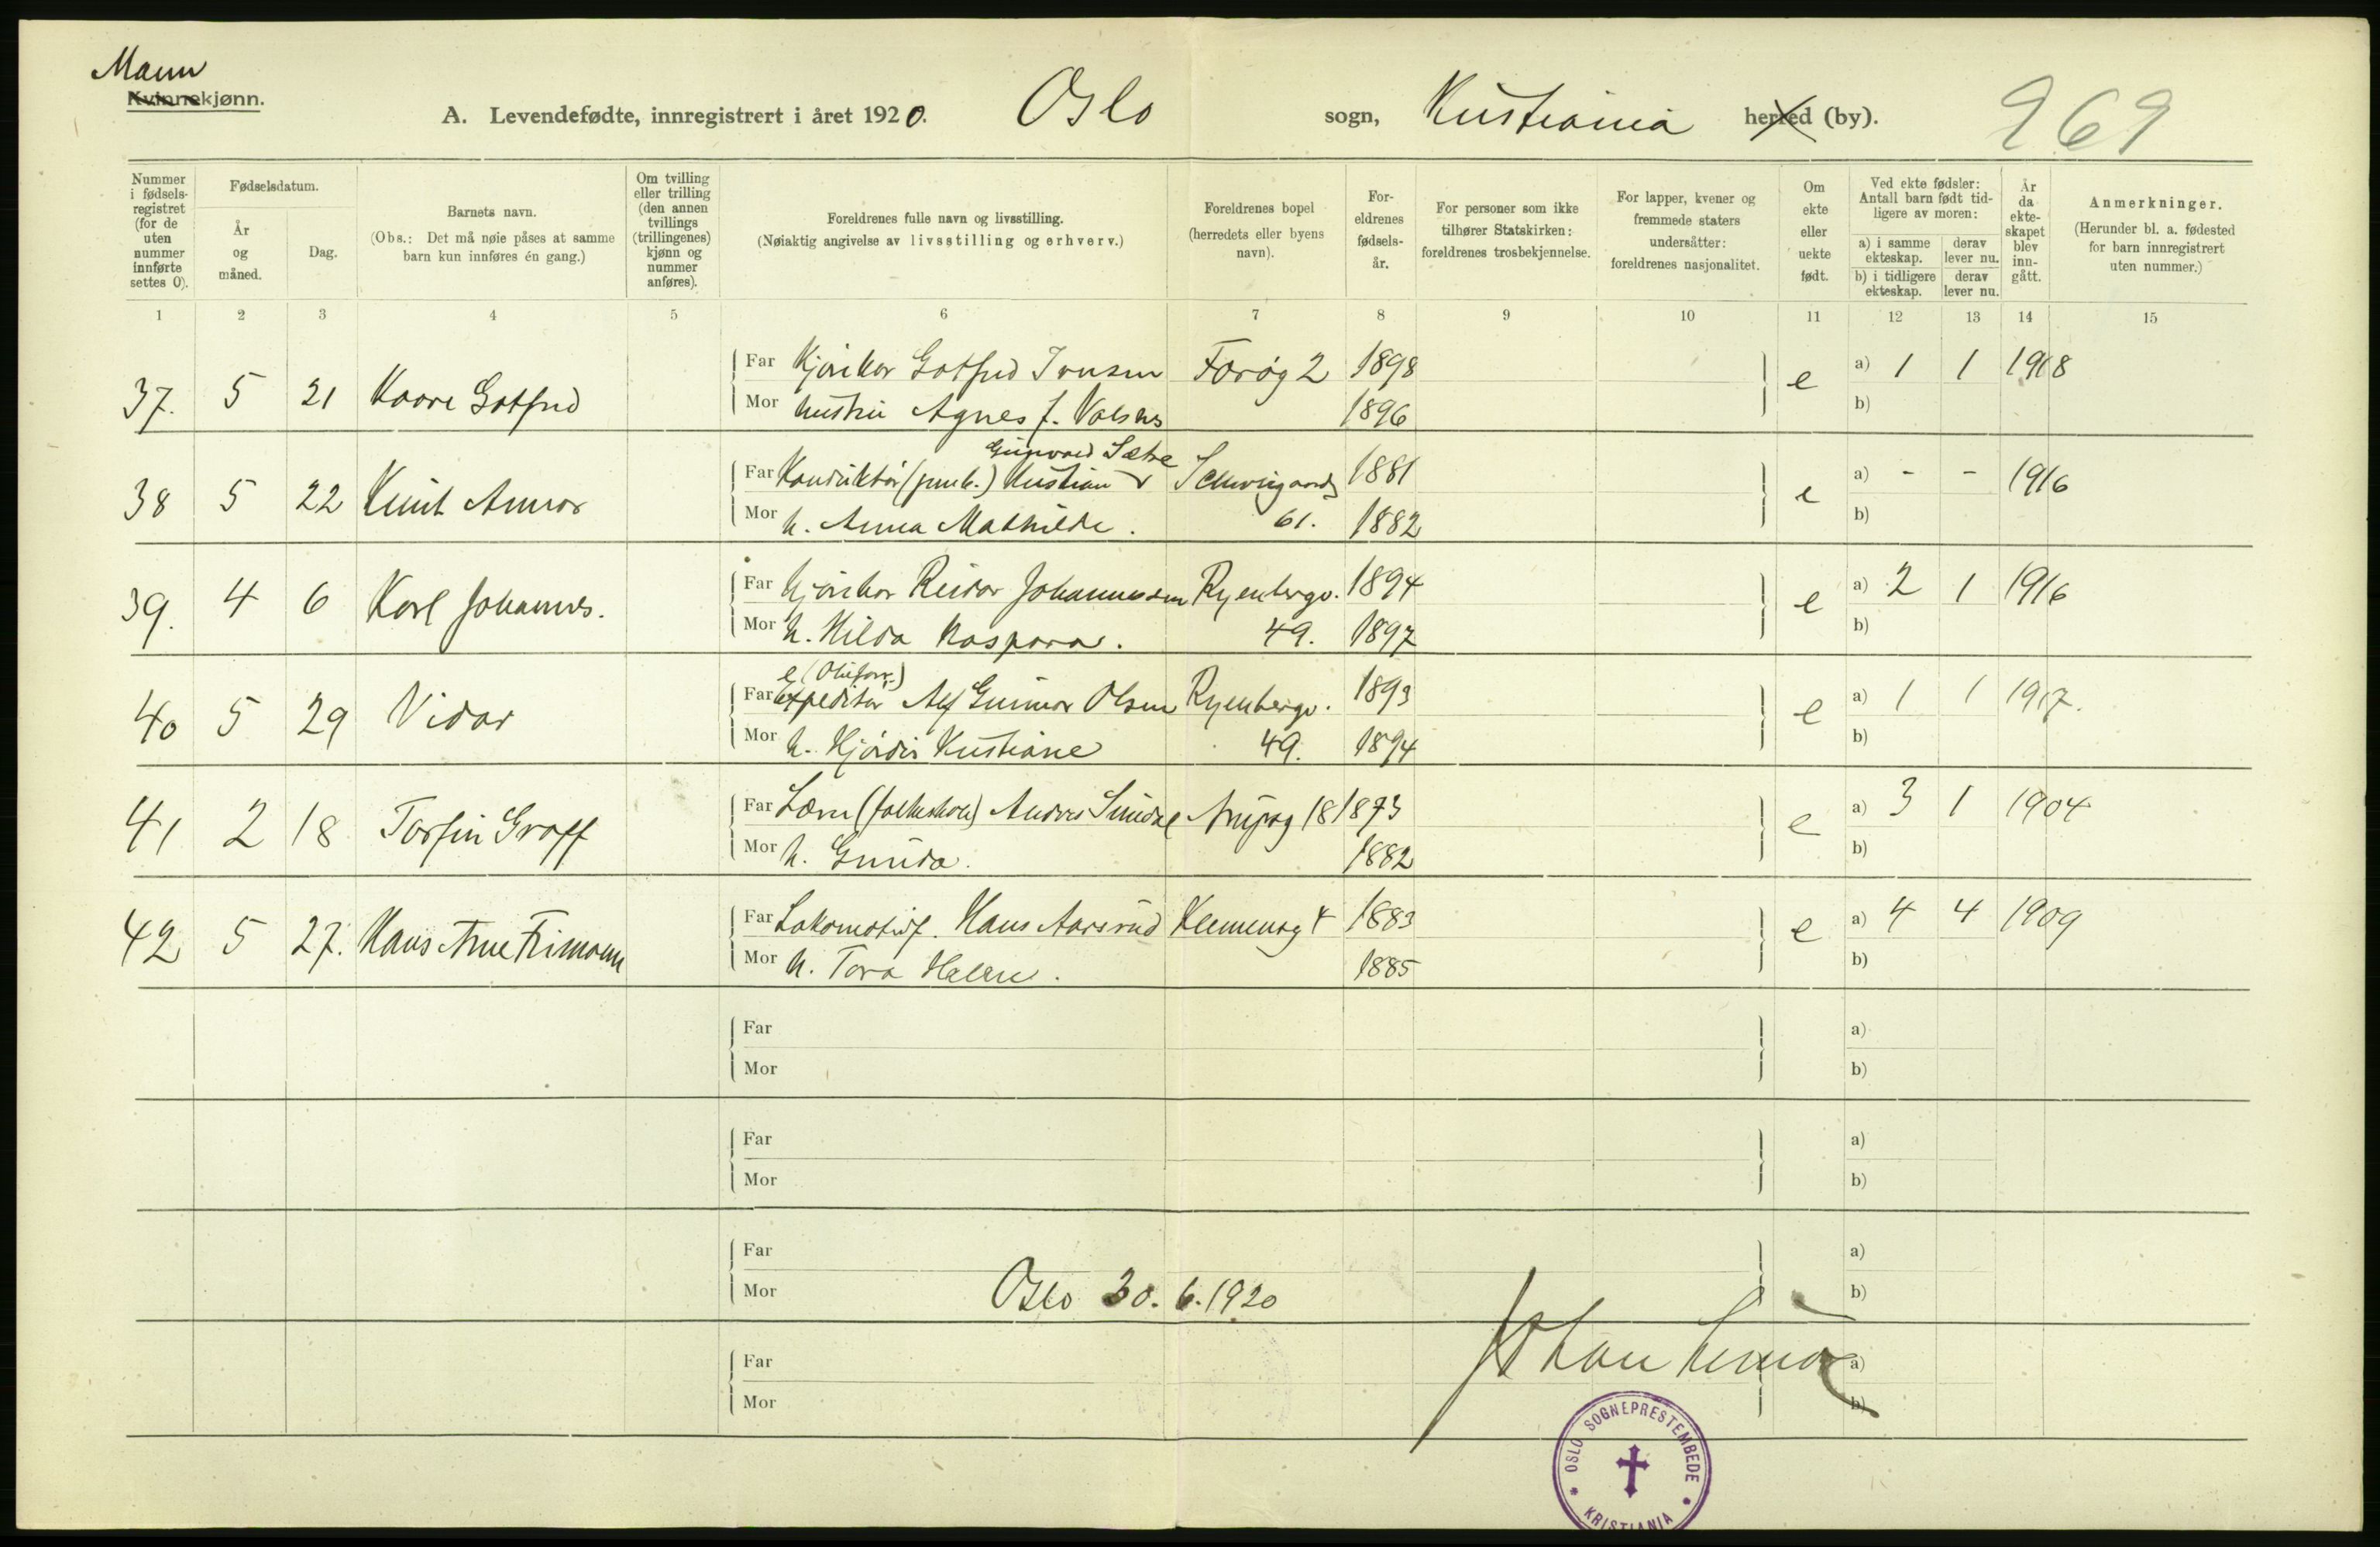 Mann
Kvinnekjønn.
A. Levendefødte, innregistrert i året 1920. Oslo sogn, Kristiania herred (by). 969
Nummer i fødsels-registret (for de uten nummer innførte settes 0).
Fødselsdatum.
År og måned.
Dag.
Barnets navn.
(Obs.: Det må nøie påses at samme barn kun innføres én gang.)
Om tvilling eller trilling (den annen tvillings (trillingenes) kjønn og nummer anføres).
Foreldrenes fulle navn og livsstilling.
(Nøiaktig angivelse av livsstilling og erhverv.)
Foreldrenes bopel (herredets eller byens navn).
For-eldrenes fødsels-år.
For personer som ikke tilhører Statskirken: foreldrenes trosbekjennelse.
For lapper, kvener og fremmede staters undersåtter: foreldrenes nasjonalitet.
Om ekte eller uekte født.
Ved ekte fødsler: Antall barn født tid-ligere av moren:
a) i samme ekteskap.
derav lever nu.
b) i tidligere ekteskap.
derav lever nu.
År da ekte-skapet blev inn-gått.
Anmerkninger.
(Herunder bl. a. fødested for barn innregistrert uten nummer.)
1 2 3 4 5 6 7 8 9 10 11 12 13 14 15
37. 5 21 Kaare Gotfred Far Kjørekar Gotfred Iversen Forøg 2 1898 e a) 1 1 1918
Mor hustru Agnes f. 1896 b)
Gunvald Sætre
38 5 22 Knut Annar Far Konduktør Kristian Schweigaardg 1881 e a) - - 1916
Mor h. Anna Mathilde. 61. 1882 b)
39. 4 6 Karl Johannes. Far Kjørekar Reidar Johannessen Ryenbergv. 1894 e a) 2 1 1916
Mor h. Hilda Kaspara. 49. 1897 b)
40 5 29 Vidar Far expeditør Alf Gunnar Olsen Ryenbergv. 1893 e a) 1 1 1917.
Mor h. Hjørdis Kristiane 49. 1894 b)
41 2 18 Torfin Graff Far Lærer (folkeskole) Anders Sundal 18 1873 e a) 3 1 1904
Mor h. Gunda. 1882 b)
42 5 27. Hans Arne Frimann Far Lokomotivf. Hans Aarsrud Klemensg 4 1883 e a) 4 4 1909
Mor h. Tora Helene. 1885 b)
Far a)
Mor b)
Far a)
Mor b)
Far a)
Mor Oslo 30. 6. 1920 b)
Far Johan a)
Mor b)
OSLO SOGNEPRESTEMBEDE
KRISTIANIA